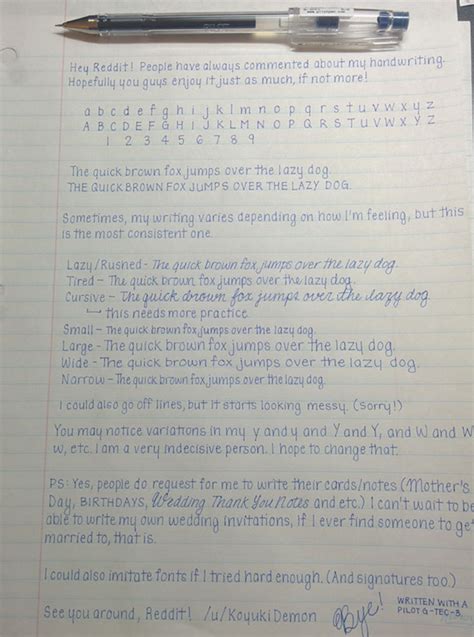 Hey Reddit! People have always commented about my handwriting.
Hopefully you guys enjoy it just as much, if not more!
a b c d e f g h i j k l m n o p q r s t u v w x y z
A B C D E F G H I J K L M N O P Q R S T U V W X Y Z
1 2 3 4 5 6 7 8 9
The quick brown fox jumps over the lazy dog.
THE QUICK BROWN FOX JUMPS OVER THE LAZY DOG.
Sometimes, my writing varies depending on how I'm feeling, but this
is the most consistent one.
Lazy/Rushed - The quick brown fox jumps over the lazy dog.
Tired - The quick brown fox jumps over the lazy dog.
Cursive - The quick brown fox jumps over the lazy dog.
this needs more practice
Small - The quick brown fox jumps over the lazy dog.
Large - The quick brown fox jumps over the lazy dog.
Wide - The quick brown fox jumps over the lazy dog.
Narrow - The quick brown fox jumps over the lazy dog.
I could also go off lines, but it starts looking messy. (Sorry!)
You may notice variations in my y and y and Y and Y, and W and W
w, etc. I am a very indecisive person. I hope to change that.
PS: Yes, people do request for me to write their cards/notes (Mother's
Day, BIRTHDAYS, Wedding Thank You Notes and etc.) I can't wait to be
able to write my own wedding invitations, if I ever find someone to get
married to, that is.
I could also imitate fonts if I tried hard enough. (And signatures too.)
See you around, Reddit! /u/Koyuki Demon Bye! WRITTEN WITH A
PILOT G-TEC-3.